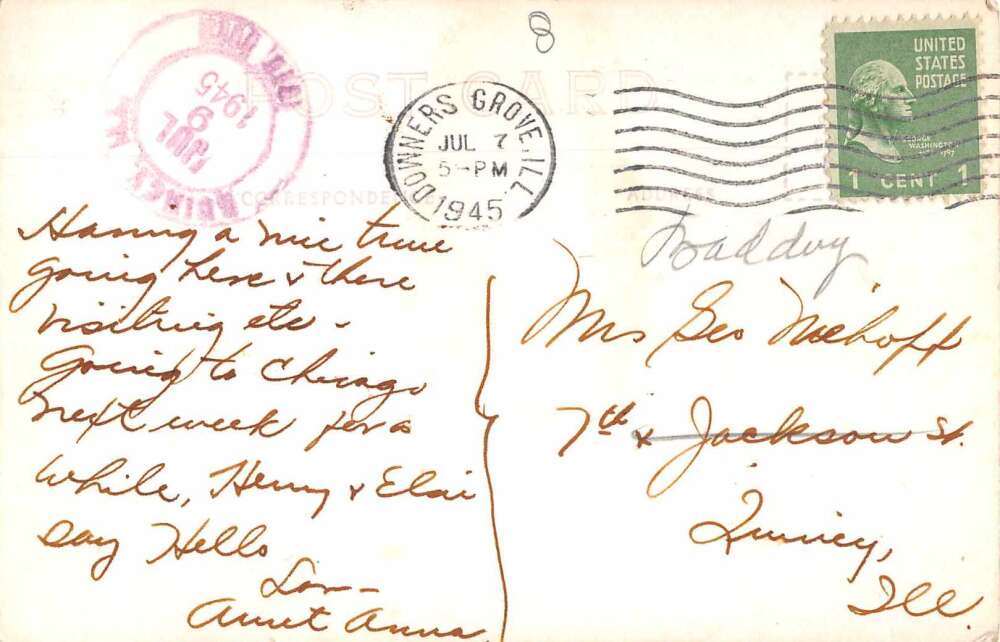 POST CARD
CORRESPONDENCE
ADDRESS
JUL 9
1945
QUINCY, ILL.
DOWNERS GROVE, ILL
JUL 7
5-PM
1945
UNITED
STATES
POSTAGE
GEORGE
WASHINGTON
1 CENT 1
8
Having a nice time
going here & there
visiting etc -
Going to Chicago
next week for a
while, Henry &
say Hello
Love -
Aunt Anna
Mrs Geo Niehoff
7th & Jackson St.
Quincy,
Ill.